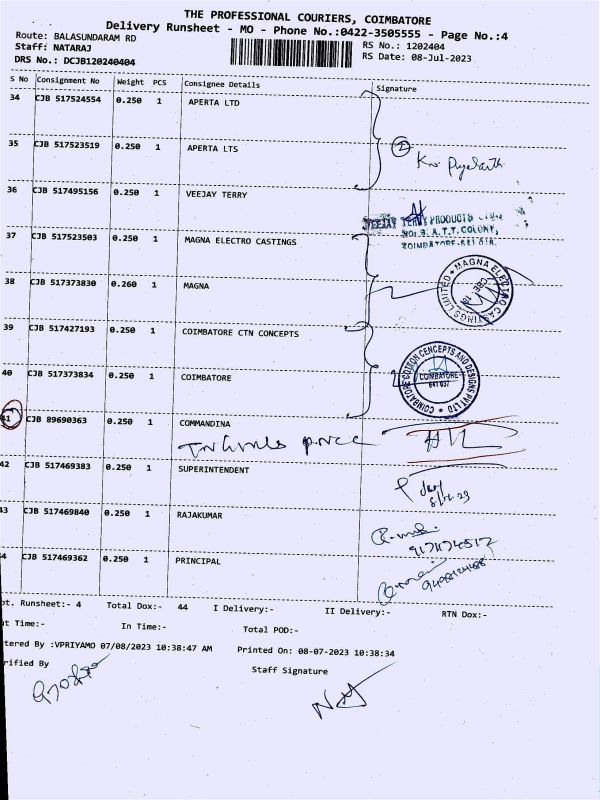 THE PROFESSIONAL COURIERS, COIMBATORE
Delivery Runsheet - MO - Phone No.:0422-3505555 - Page No.:4
Route: BALASUNDARAM RD
RS No.: 1202404
Staff: NATARAJ
RS Date: 08-Jul-2023
DRS No.: DCJB120240404
S No Consignment No Weight PCS Consignee Details Signature
34 CJB 517524554 0.250 1 APERTA LTD
35 CJB 517523519 0.250 1 APERTA LTS
36 CJB 517495156 0.250 1 VEEJAY TERRY
VEEJAY TERRY PRODUCTS
NO. 9. A.T.T. COLONY,
COIMBATORE-641 018.
37 CJB 517523503 0.250 1 MAGNA ELECTRO CASTINGS
38 CJB 517373830 0.260 1 MAGNA
MAGNA ELECTRO CASTINGS LIMITED
39 CJB 517427193 0.250 1 COIMBATORE CTN CONCEPTS
40 CJB 517373834 0.250 1 COIMBATORE
COIMBATORE COTTON CENCEPTS AND DESIGNS PVT LTD
COIMBATORE
641 037
41 CJB 89690363 0.250 1 COMMANDINA
42 CJB 517469383 0.250 1 SUPERINTENDENT
43 CJB 517469840 0.250 1 RAJAKUMAR
44 CJB 517469362 0.250 1 PRINCIPAL
ot. Runsheet:- 4 Total Dox:- 44 I Delivery:- II Delivery:- RTN Dox:-
ut Time:- In Time:- Total POD:-
tered By :VPRIYAMO 07/08/2023 10:38:47 AM Printed On: 08-07-2023 10:38:34
rified By Staff Signature